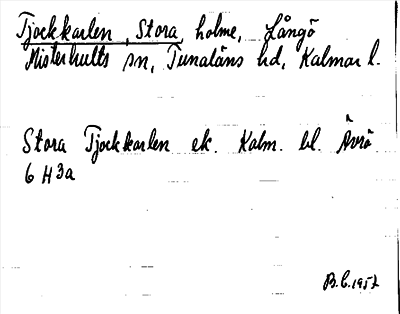 Tjockkarlen, Stora, holme, Långö
Misterhults sn, Tunaläns hd, Kalmar l.
Stora Tjockkarlen ek. Kalm. bl. Ävrö
6 H 3a
B.C. 1957